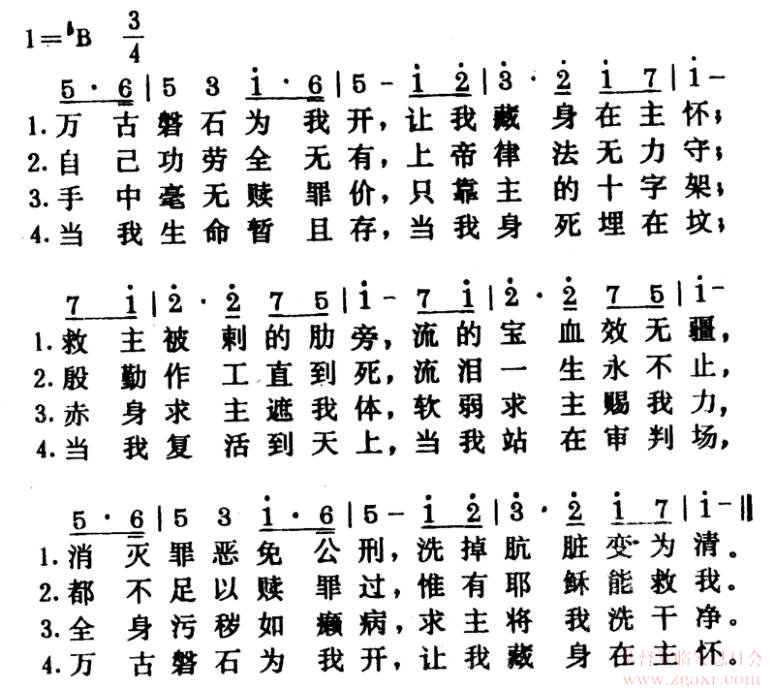 1=♭B 3/4
5·6|5 3 i·6|5- i 2|3·2 i 7|i-
1.万古磐石为我开,让我藏身在主怀;
2.自己功劳全无有,上帝律法无力守;
3.手中毫无赎罪价,只靠主的十字架;
4.当我生命暂且存,当我身死埋在坟;
7 i|2·2 7 5|i- 7 i|2·2 7 5|i-
1.救主被刺的肋旁,流的宝血效无疆,
2.殷勤作工直到死,流泪一生永不止,
3.赤身求主遮我体,软弱求主赐我力,
4.当我复活到天上,当我站在审判场,
5·6|5 3 i·6|5- i 2|3·2 i 7|i-‖
1.消灭罪恶免公刑,洗掉肮脏变为清。
2.都不足以赎罪过,惟有耶稣能救我。
3.全身污秽如癞病,求主将我洗干净。
4.万古磐石为我开,让我藏身在主怀。
www.zgaxr.com